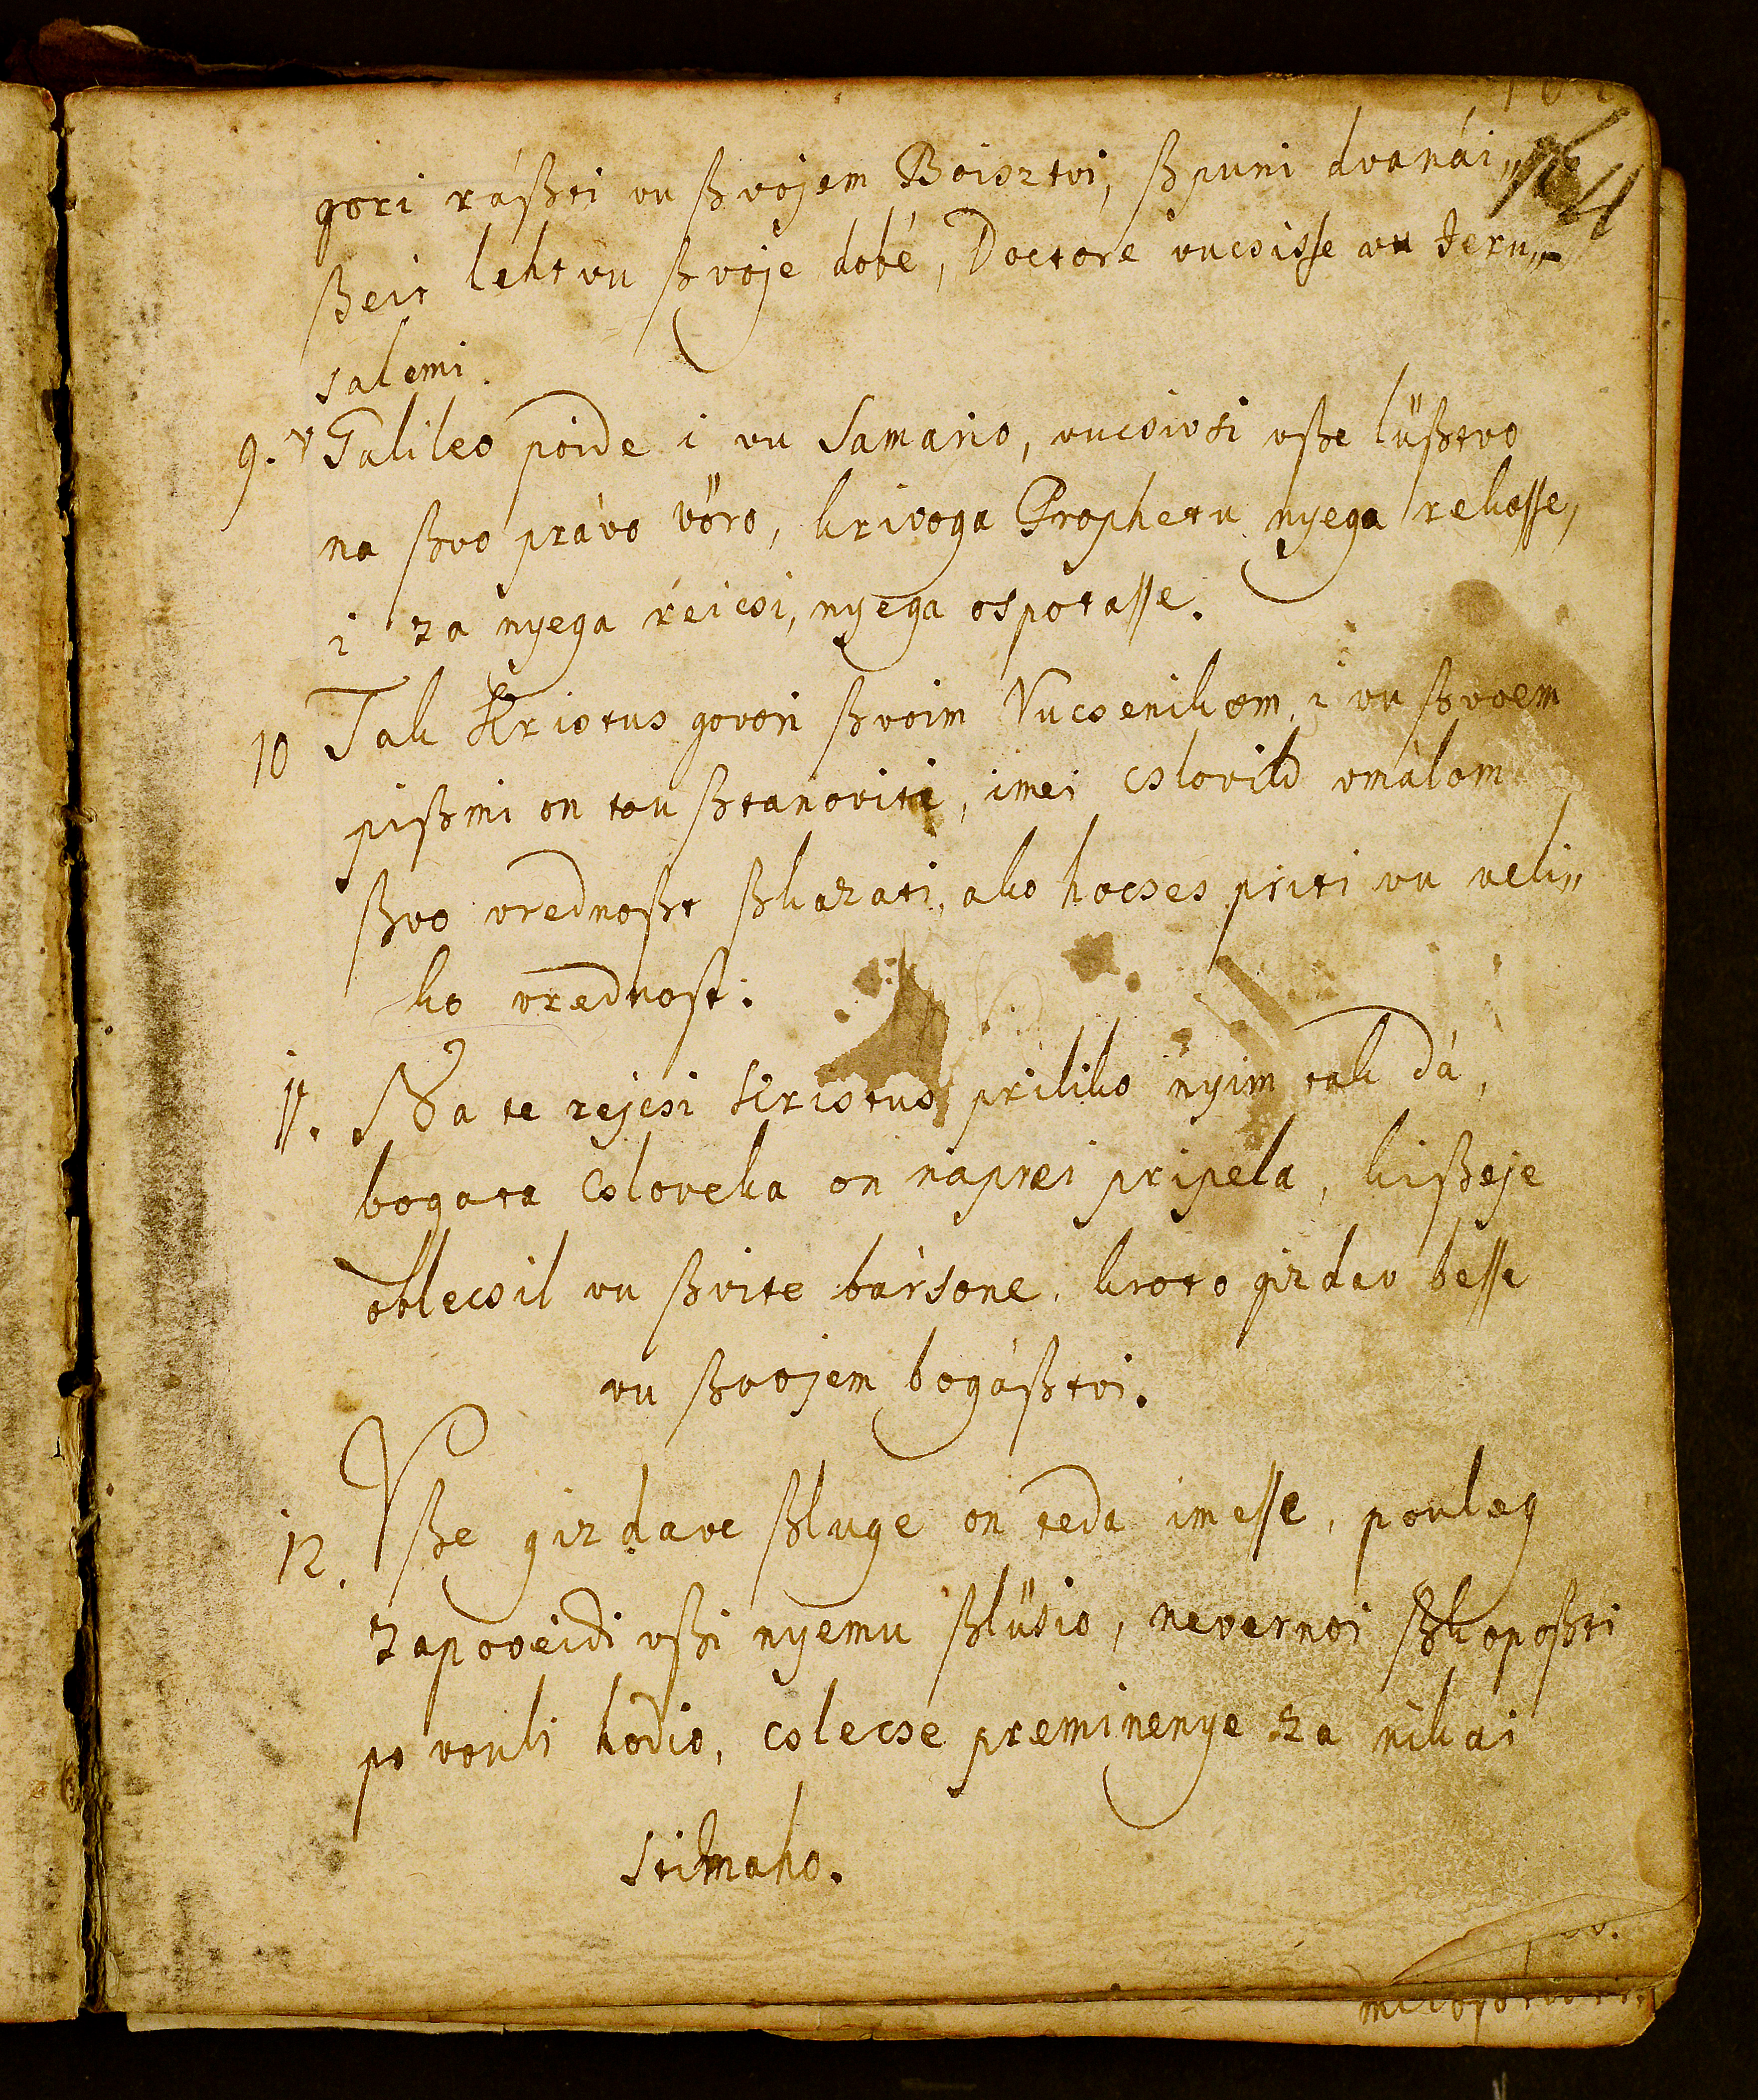 164
gori ráßti vu ßvojem Boisztvi, ßpuni dvanái„
ßeit leht vu ßvoje dobé, Doctore vucsisse vu Jeru„
salemi.
9. v Galileo poide i vu Samario, vucsivsi vße lüßtvo
na ßvo právo vöro, krivoga Propheta nyega rekosse,
i za nyega réicsi, nyega ospotasse.
10 Tak Kristus govori ßvoim Vucsenikom, i vu ßvoem
pißmi on tou ßtanoviti, imei cslovik vmálom
ßvo vrednoßt ßkazati, ako hocses priti vu veli„
ko vrednost.
11. Na te rejcsi Kristus priliko nyim tak dá,
bogata csloveka on náprei pripela, kißeje
oblecsil vu ßvite bársone, kroto gizdav besse
vu ßvojem bogáßtvi.
12. Vße gizdave ßluge on teda imesse, pouleg
zapoveidi vßi nyemu ßlüsio, nevernoi ßkopoßti
po vouli hodio, cslecse preminenye za nikai
stimaho.